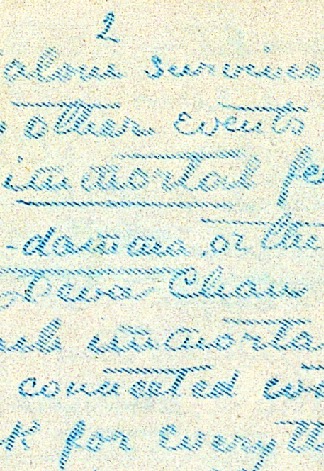 2
alone survives
other events
immortal fe
-damma, or the
Deva Chan
immorta
connected wi
k for everyth